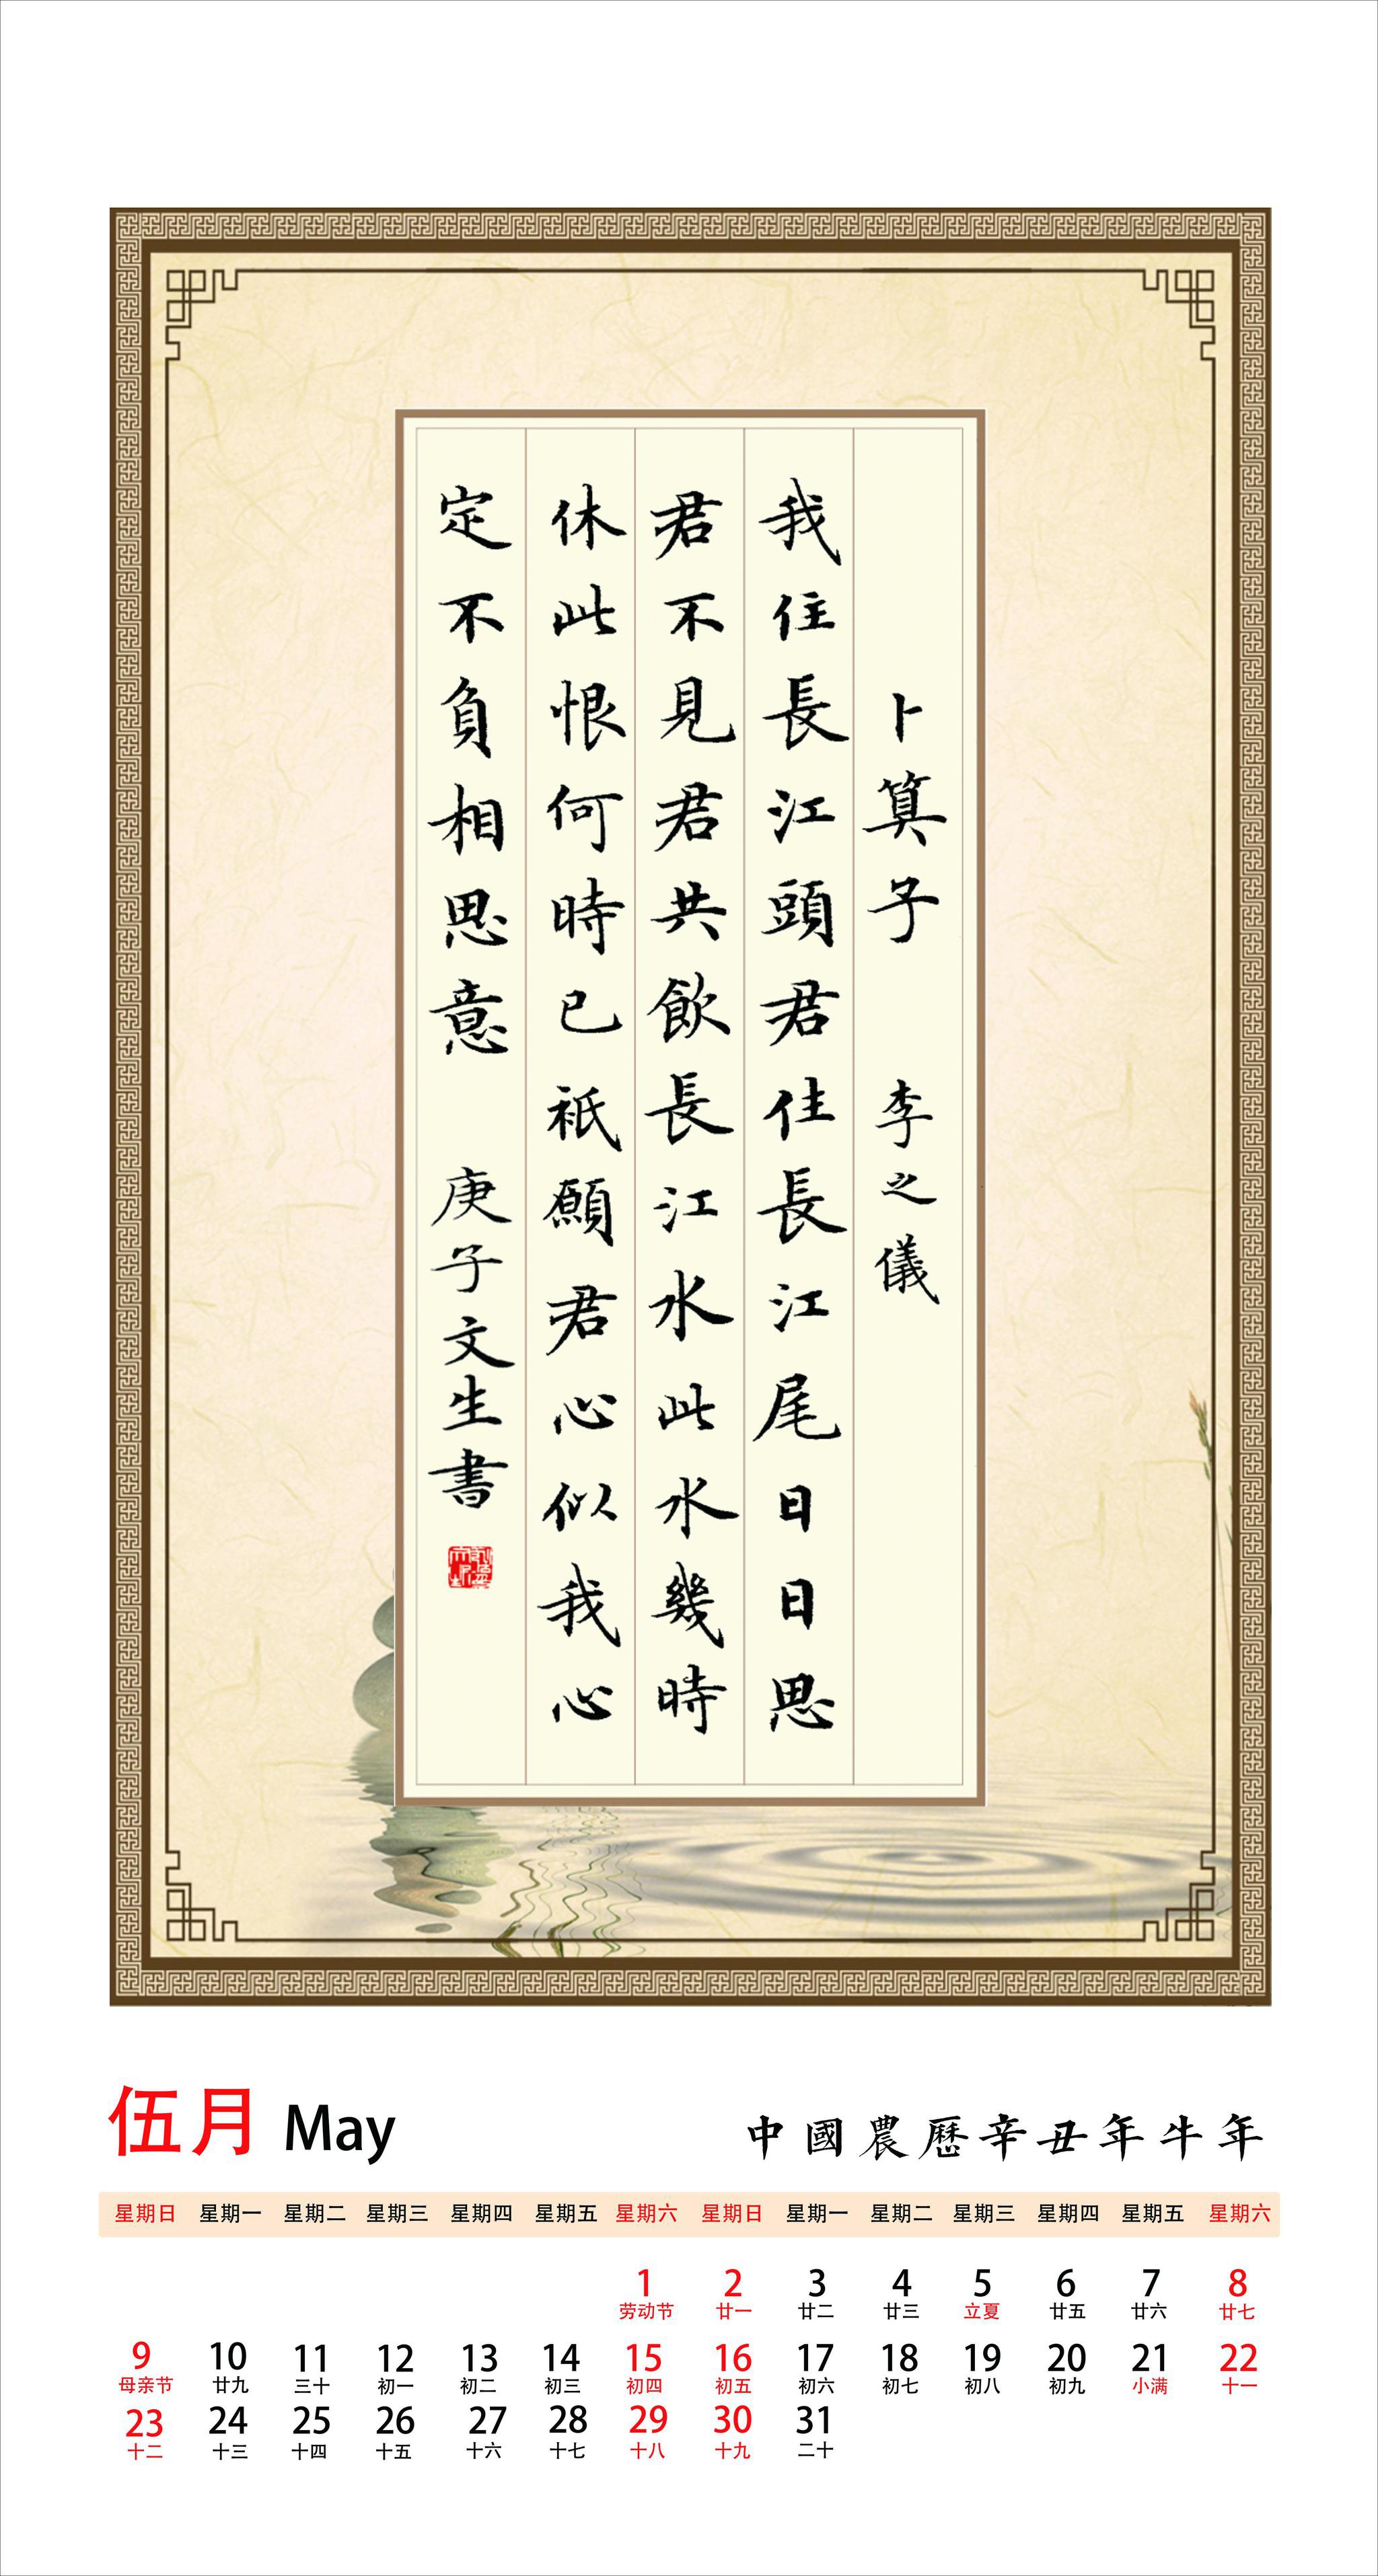 卜算子 李之儀
我住長江頭君住長江尾日日思
君不見君共飲長江水此水幾時
休此恨何時已祇願君心似我心
定不負相思意 庚子文生書
伍月 May
中國農歷辛丑年牛年
星期日 星期一 星期二 星期三 星期四 星期五 星期六 星期日 星期一 星期二 星期三 星期四 星期五 星期六
1 2 3 4 5 6 7 8
劳动节 廿一 廿二 廿三 立夏 廿五 廿六 廿七
9 10 11 12 13 14 15 16 17 18 19 20 21 22
母亲节 廿九 三十 初一 初二 初三 初四 初五 初六 初七 初八 初九 小满 十一
23 24 25 26 27 28 29 30 31
十二 十三 十四 十五 十六 十七 十八 十九 二十